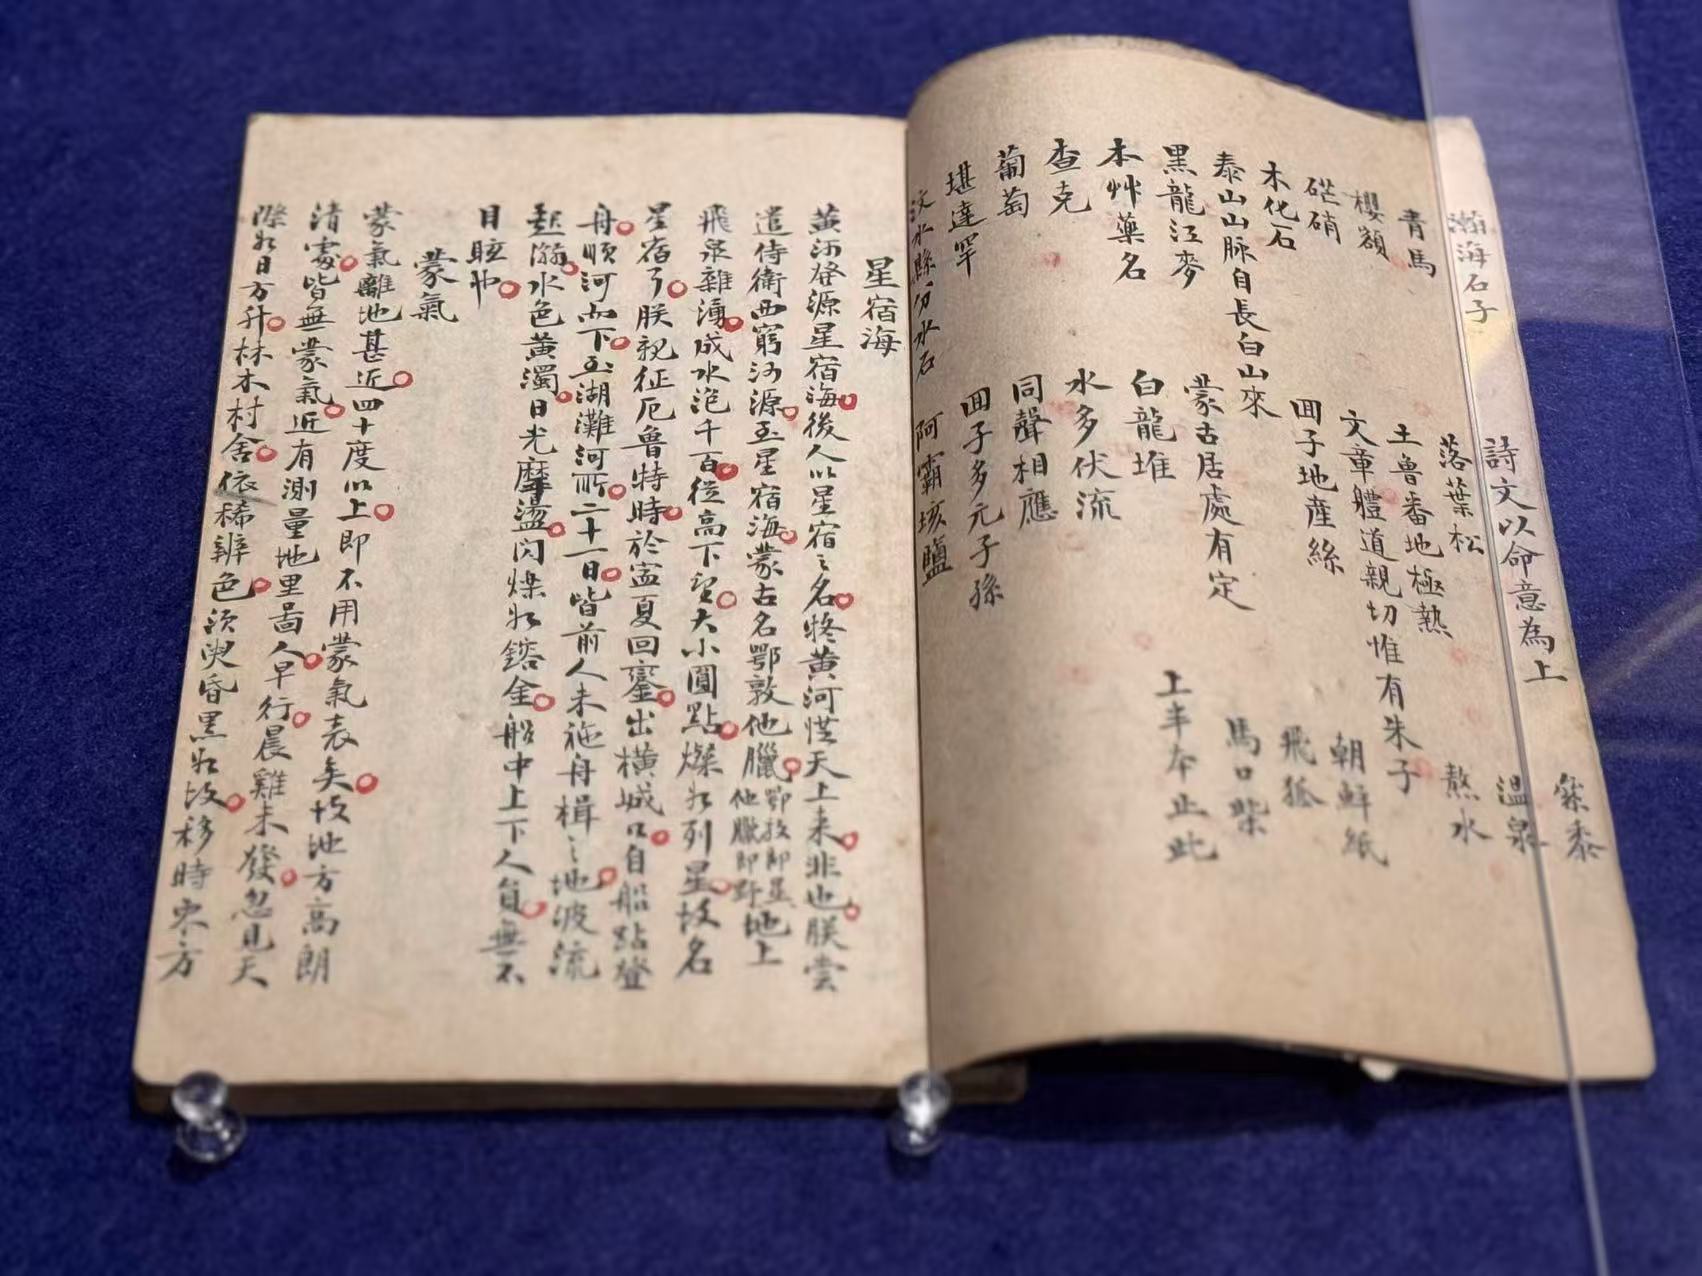 瀚海石子 詩文以命意為上 黍
青馬 落葉松 温泉
櫻額 土魯番地極熱 熬水
硭硝 文章體道親切惟有朱子
木化石 囬子地產絲 朝鮮紙
泰山山脈自長白山來 飛狐
黑龍江麥 蒙古居處有定 馬口柴
本艸藥名 白龍堆 上半本止此
查克 水多伏流
葡萄 同聲相應
堪達罕 囬子多元子孫
汶水縣分水石 阿霸垓鹽
星宿海
黃河發源星宿海後人以星宿之名將黃河天上來非也朕嘗
遣侍衛西窮河源至星宿海蒙古名鄂敦他臘鄂敦即星他臘即野地上
飛泉雜湧成水泡千百從高下望大小圓點燦如列星故名
星宿了朕親征厄魯特時於寧夏回鑾出橫城口自船站登
舟順河而下至湖灘河所二十一日皆前人未施舟楫之地波流
瀚水色黃濁日光摩盪閃爍如鎔金船中上下人員無不
目眩也
蒙氣
蒙氣離地甚近四十度以上即不用蒙氣表矣故地方高朗
清處皆無蒙氣近有測量地里畵人早行晨雞未發忽見天
際如日方升林木村舍依稀辨色須臾昏黑如故移時東方